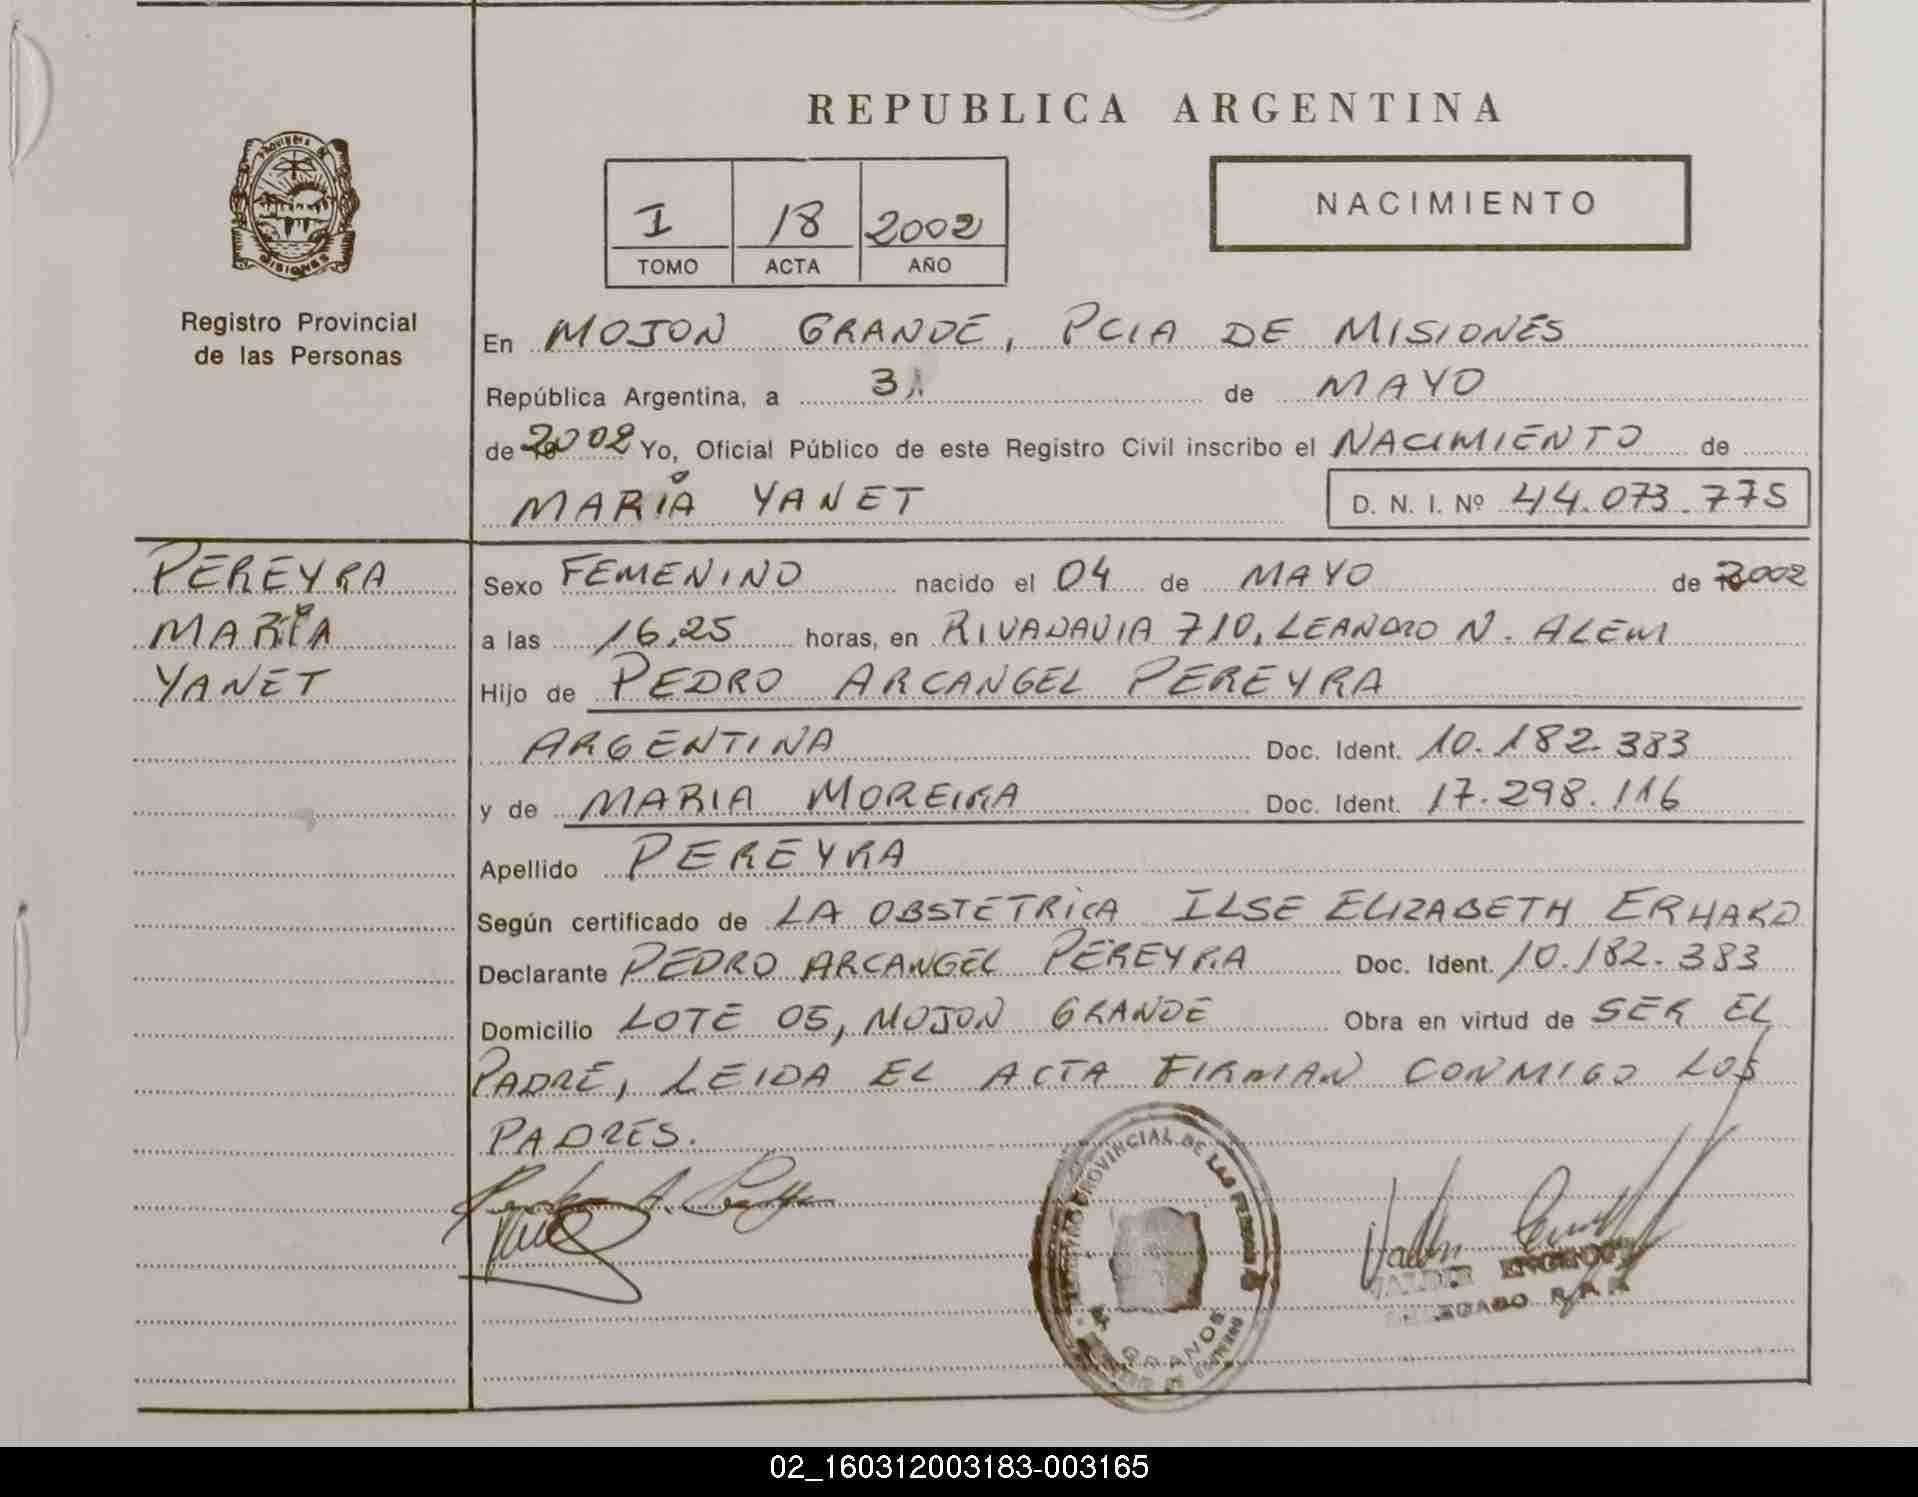 REPUBLICA ARGENTINA
PROVINCIA DE
MISIONES
Registro Provincial
de las Personas
I 18 2002
TOMO ACTA AÑO
NACIMIENTO
En MOJON GRANDE, PCIA DE MISIONES
República Argentina, a 31 de MAYO
de 2002 Yo, Oficial Público de este Registro Civil inscribo el NACIMIENTO de
MARIA YANET D. N. I. Nº 44.073.775
PEREYRA
MARIA
YANET
Sexo FEMENINO nacido el 04 de MAYO de 2002
a las 16,25 horas, en RIVADAVIA 710, LEANDRO N. ALEM
Hijo de PEDRO ARCANGEL PEREYRA
ARGENTINA Doc. Ident. 10.182.383
y de MARIA MOREIRA Doc. Ident. 17.298.116
Apellido PEREYRA
Según certificado de LA OBSTETRICA ILSE ELIZABETH ERHARD
Declarante PEDRO ARCANGEL PEREYRA Doc. Ident. 10.182.383
Domicilio LOTE 05, MOJON GRANDE Obra en virtud de SER EL
PADRE, LEIDA EL ACTA FIRMAN CONMIGO LOS
PADRES.
REGISTRO PROVINCIAL DE LAS PERSONAS
DELEGADO
02_160312003183-003165